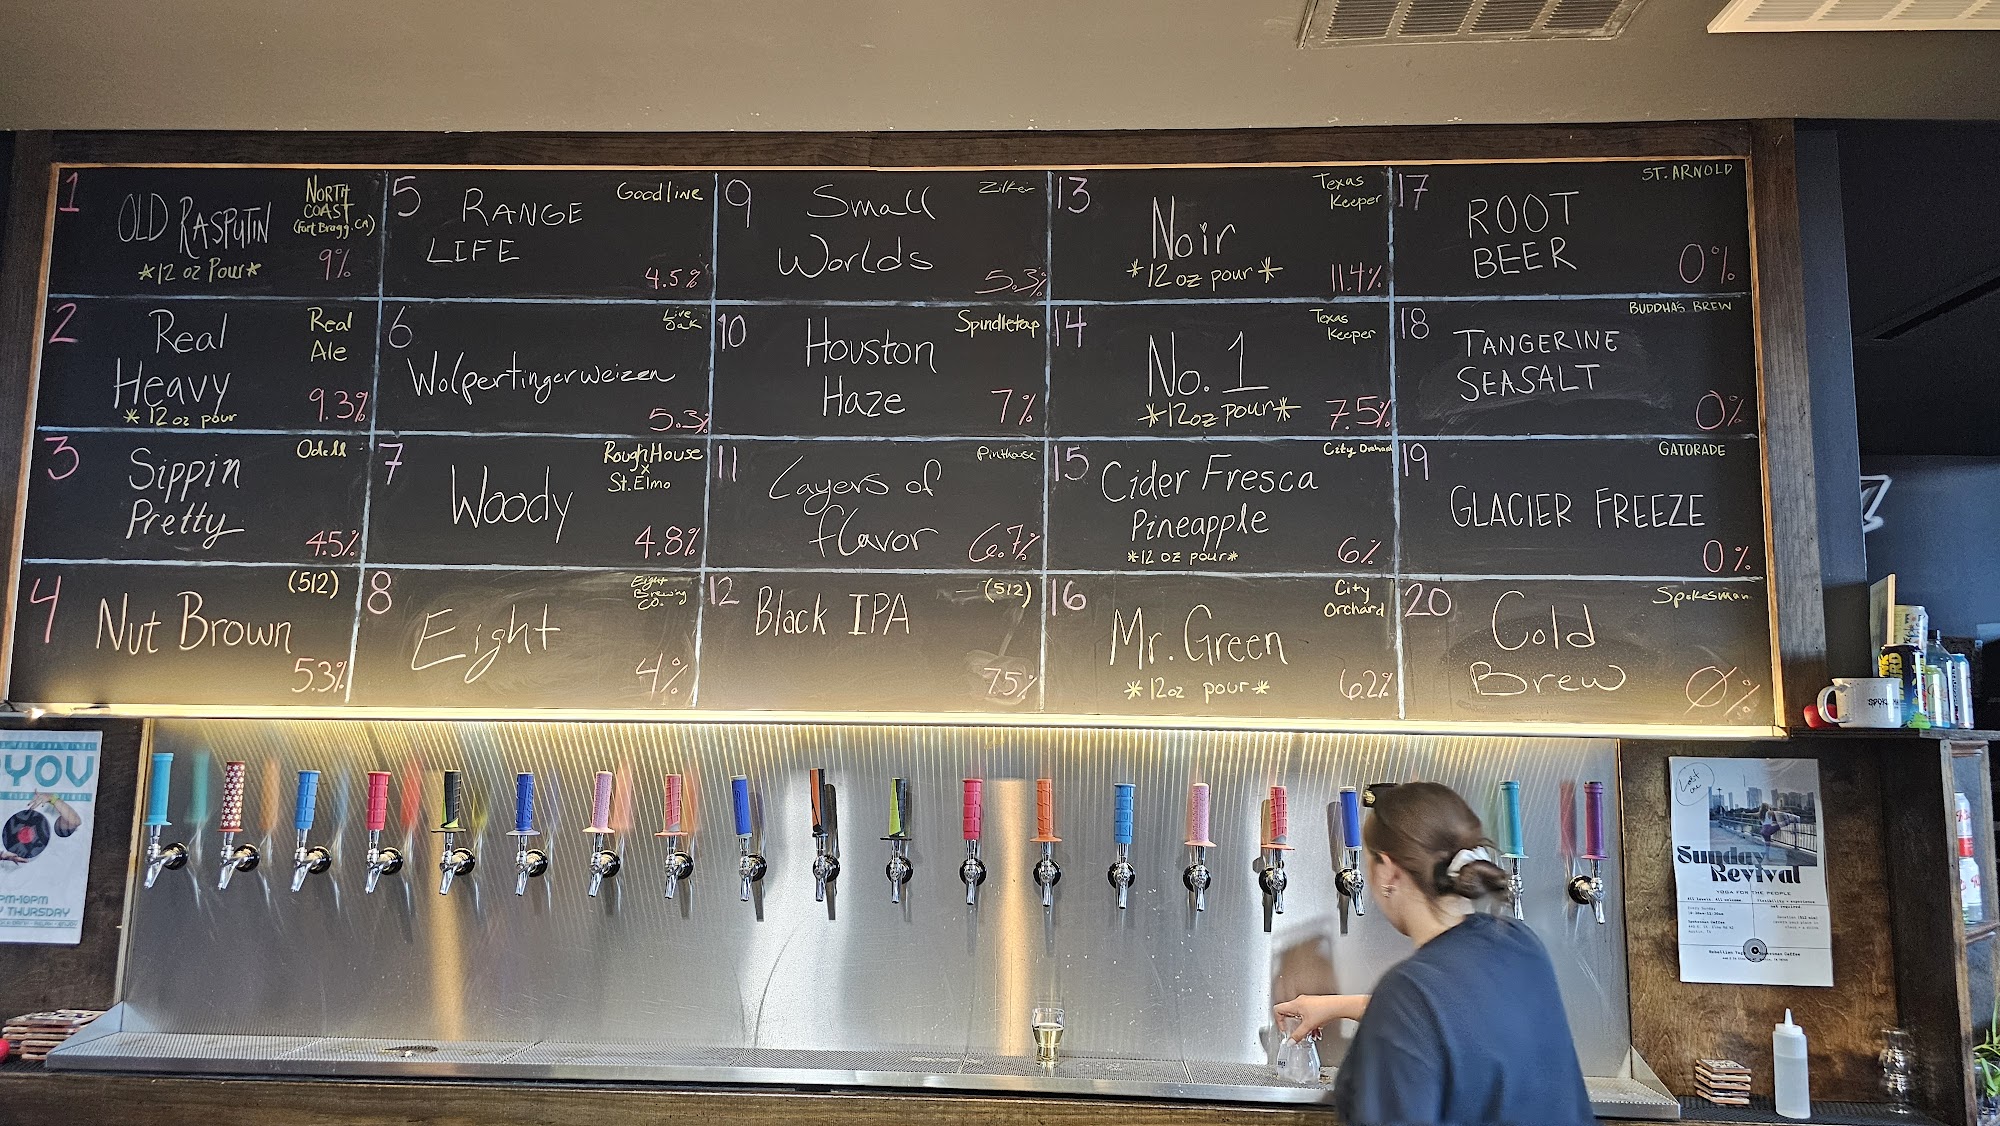 1
OLD RASPUTIN
*12 oz Pour*
NORTH
COAST
(Fort Bragg, CA)
9%
2
Real
Heavy
*12 oz pour
Real
Ale
9.3%
3
Sippin
Pretty
Odell
4.5%
4
Nut Brown
(512)
5.3%
5
RANGE
LIFE
Goodline
4.5%
6
Wolpertingerweizen
Live
Oak
5.3%
7
Woody
RoughHouse
x
St. Elmo
4.8%
8
Eight
Eight
Brewing
CO.
4%
9
Small
Worlds
Zilker
5.3%
10
Houston
Haze
Spindletap
7%
11
Layers of
flavor
Pinthouse
6.7%
12
Black IPA
(512)
7.5%
13
Noir
*12 oz pour*
Texas
Keeper
11.4%
14
No. 1
*12oz pour*
Texas
Keeper
7.5%
15
Cider Fresca
Pineapple
*12 oz pour*
City Orchard
6%
16
Mr. Green
*12oz pour*
City
Orchard
6.2%
17
ROOT
BEER
ST. ARNOLD
0%
18
TANGERINE
SEASALT
BUDDHAS BREW
0%
19
GLACIER FREEZE
GATORADE
0%
20
Cold
Brew
Spokesman
0%
YOV
PM-10PM
Y THURSDAY
Sunday
Revival
YOGA FOR THE PEOPLE